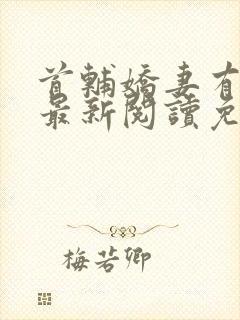 首輔嬌妻有
最新閱讀免
梅若卿